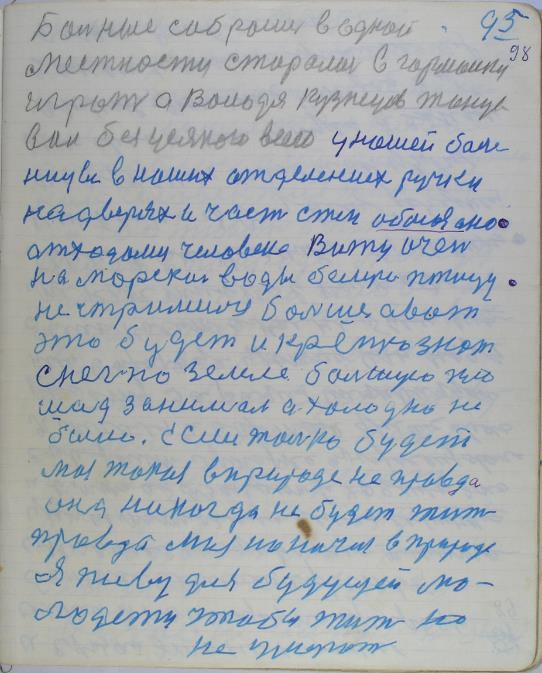 95
98
Болные собрались в одной
местности старались в гармошку
играт а Володя Кузнецов танце
вал без цсякого весло у нашей боле
нице в наших отделениех ручки
на дверях и част стен обосрано
отходами человека Вижу очен
на морской воды белую птицу.
не стримлюс болше а вот
это будет и крепко знат
снег по земле болшую пло
щад занимал а холодно не
было. Если толко будет
моя такая в природе не правда
она никогда не будет жит
правда моя поначал в природе
Я живу для будущей мо-
лодежи чтобы жит но
не умират